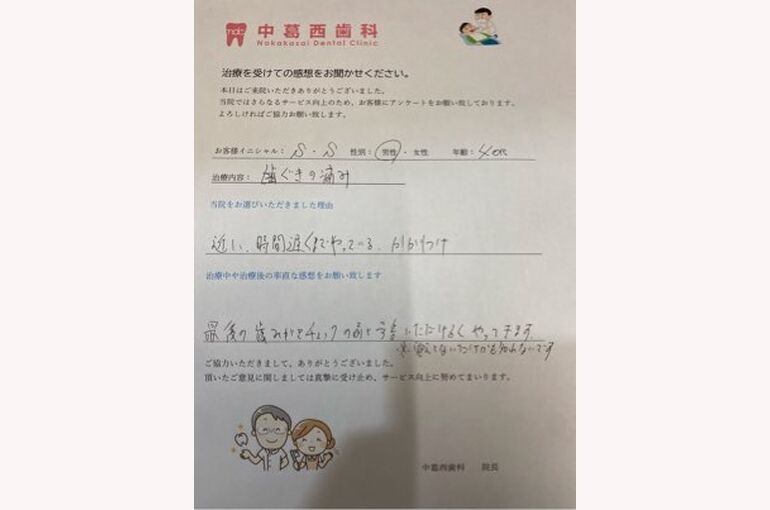 ndc 中葛西歯科
Nakakasai Dental Clinic
治療を受けての感想をお聞かせください。
本日はご来院いただきありがとうございました。
当院ではさらなるサービス向上のため、お客様にアンケートをお願い致しております。
よろしければご協力お願い致します。
お客様イニシャル: S・S 性別: 男性・女性 年齢: 40代
治療内容: 歯ぐきの痛み
当院をお選びいただきました理由
近い、時間遅くまでやっている、かかりつけ
治療中や治療後の率直な感想をお願い致します
最後の歯みがきチェックの前
やってます
ご協力いただきまして、ありがとうございました。
頂いたご意見に関しましては真摯に受け止め、サービス向上に努めてまいります。
中葛西歯科 院長